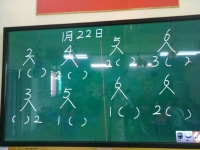 1月22日
2 4 5 6
1( ) 2( ) 2( ) 3( )
3 5 6 6
( )2 1( ) 1( ) 2( )